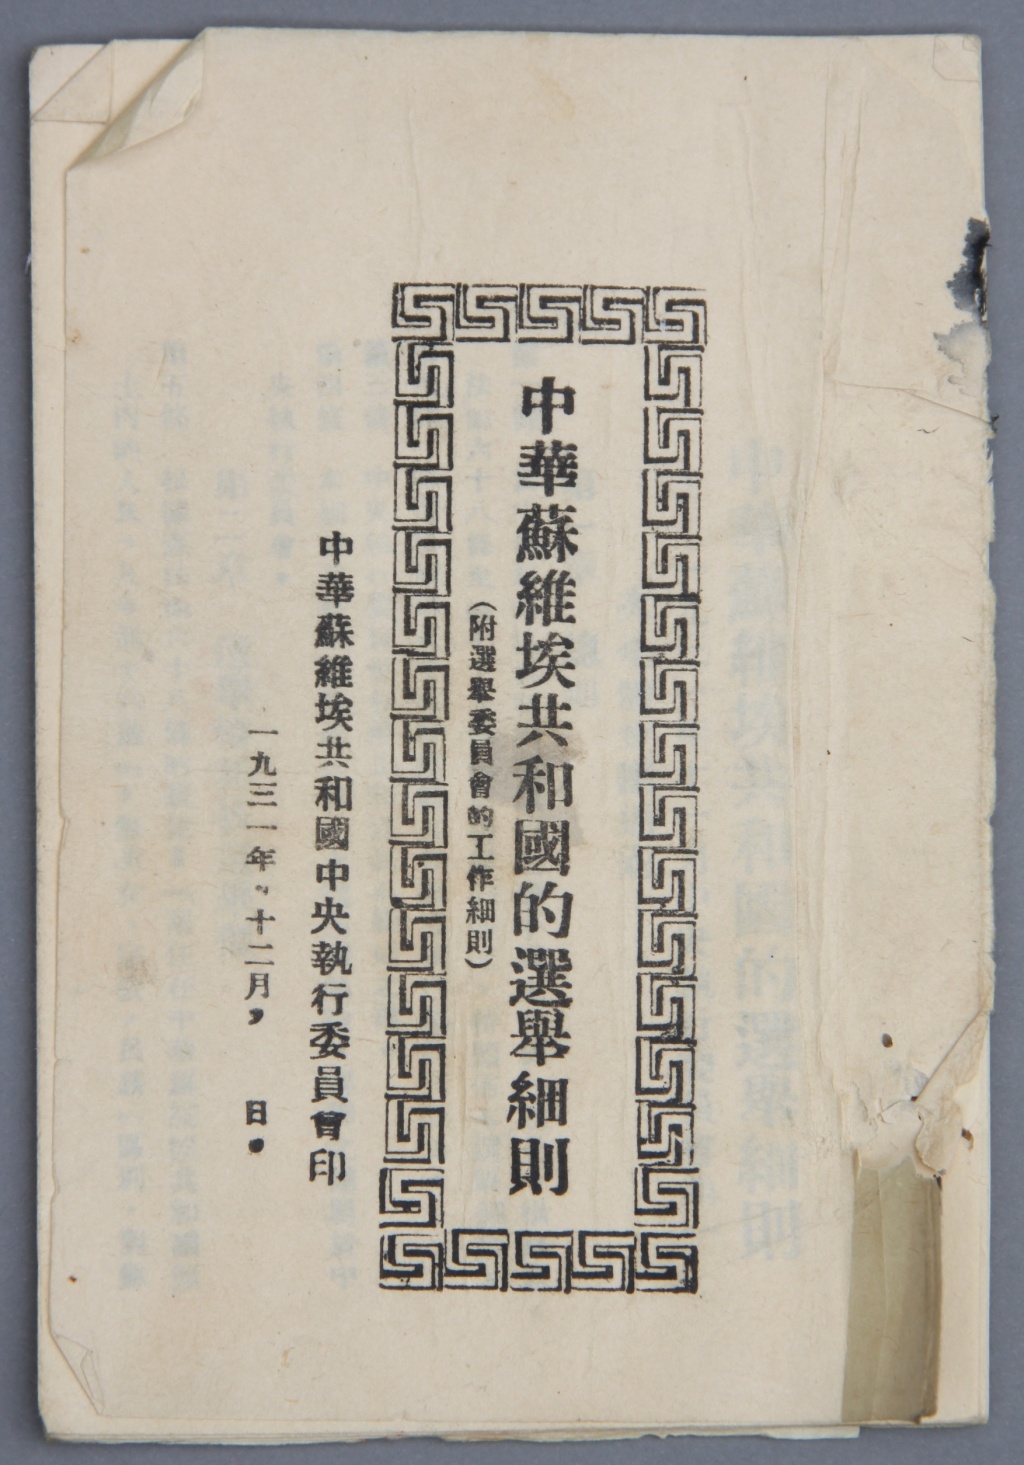 中華蘇維埃共和國的選舉細則
（附選舉委員會的工作細則）
中華蘇維埃共和國中央執行委員會印
一九三一年、十二月，　日。